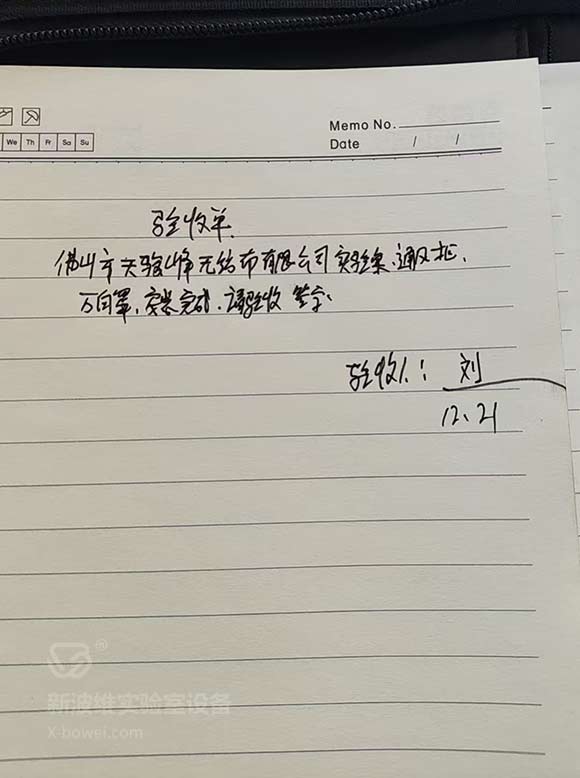 Memo No.
Date / /
We Th Fr Sa Su
验收单
佛山市天骏峰无纺布有限公司实验桌、通风柜、
万向罩,安装完成,请验收签字.
验收人: 刘
12.21
新波维实验室设备
X-bowei.com